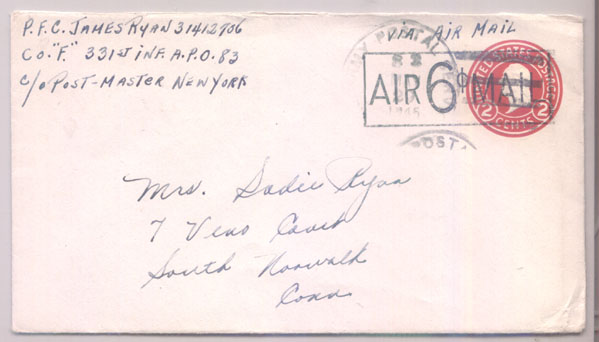 P.F.C. JAMES RYAN 31412706
CO. "F." 331ST INF. A.P.O. 83
C/O POST-MASTER NEW YORK
VIA AIR MAIL
POSTAL
AIR 6¢ MAIL
1945
POSTA
UNITED STATES POSTAGE
2 CENTS 2
Mrs. Sadie Ryan
7 Court
South Norwalk
Conn